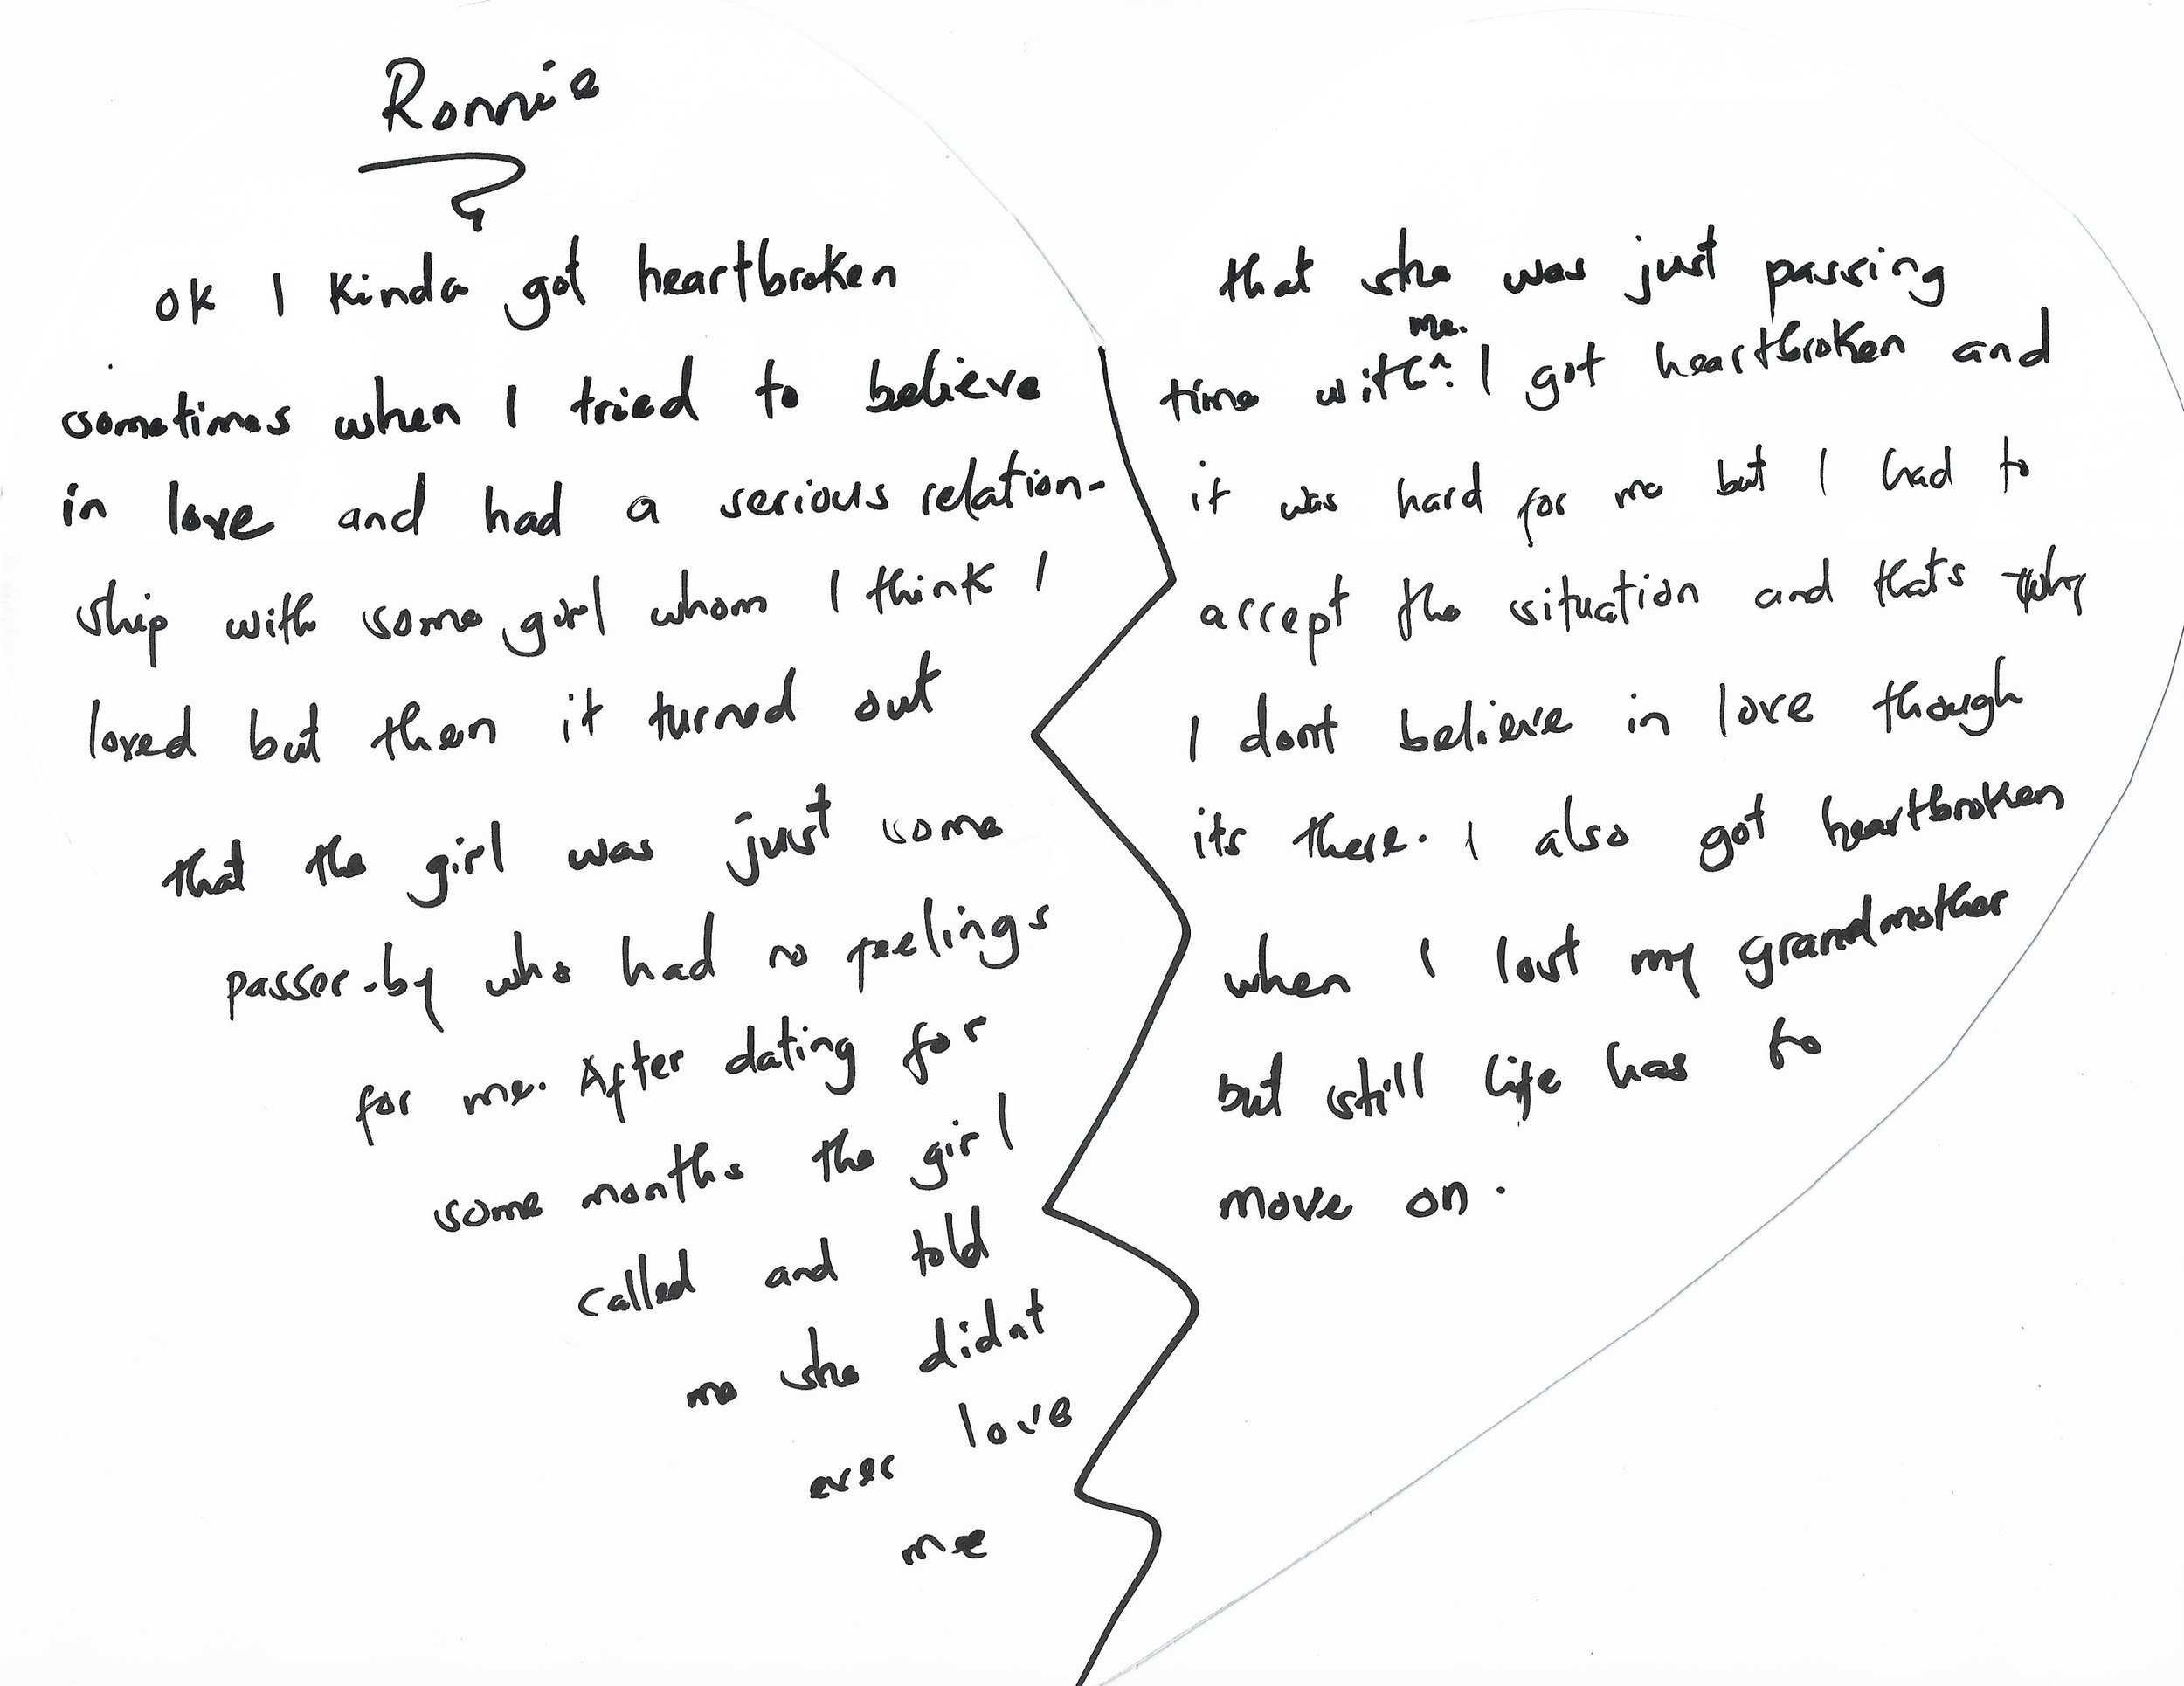 Ronnie
ok I kinda got heartbroken
sometimes when I tried to believe
in love and had a serious relation-
ship with some girl whom I think I
loved but then it turned out
that the girl was just some
passer-by who had no feelings
for me. After dating for
some months the girl
called and told
me she didnt
ever love
me
that she was just passing
me.
time with^. I got heartbroken and
it was hard for me but I had to
accept the situation and thats why
I dont believe in love though
its there. I also got heartbroken
when I lost my grandmother
but still life has to
move on.